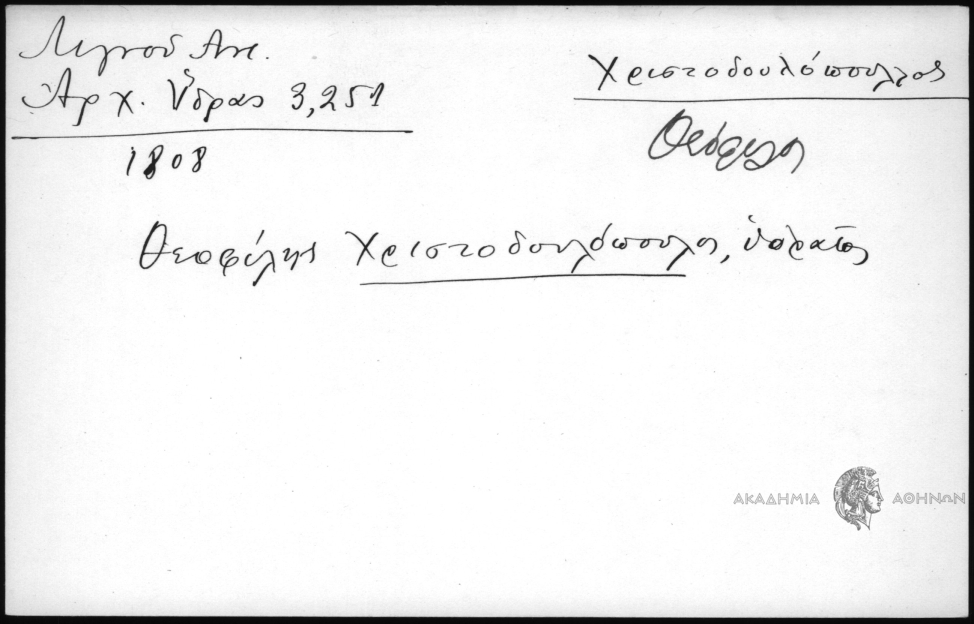 Λιγνού Αντ.
Ἀρχ. Ὕδρας 3,251
1808
Χριστοδουλόπουλος
Θεόφιλος
Θεοφίλης Χριστοδουλόπουλος, ὑδραῖος
ΑΚΑΔΗΜΙΑ ΑΘΗΝΩΝ